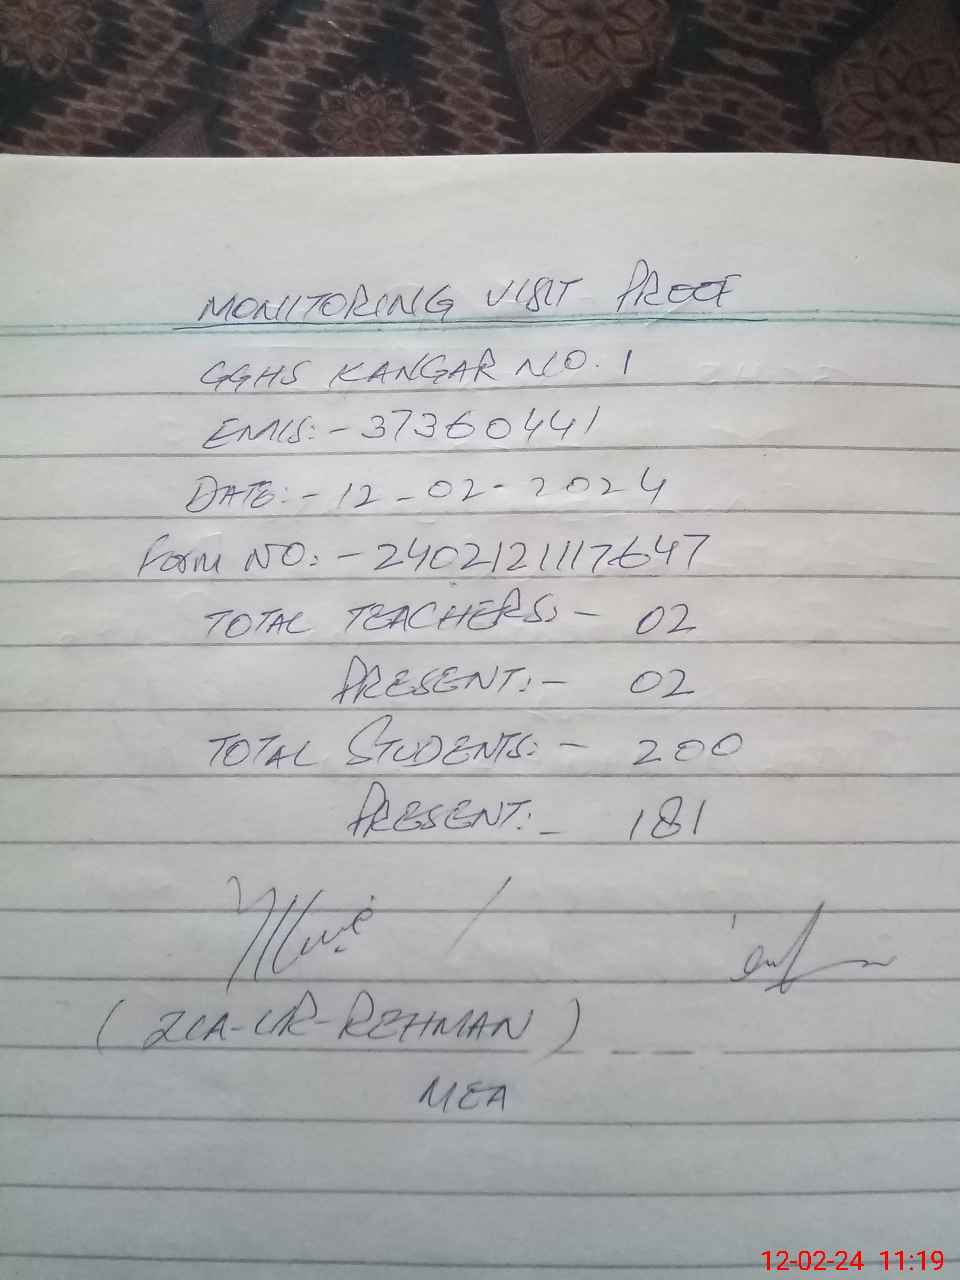 MONITORING VISIT PROOF
GGHS KANGAR NO. 1
EMIS:- 37360441
DATE:- 12-02-2024
Form NO:- 2402121117647
TOTAL TEACHERS:- 02
PRESENT:- 02
TOTAL STUDENTS:- 200
PRESENT:- 181
(ZIA-UR-REHMAN)
MEA
12-02-24 11:19